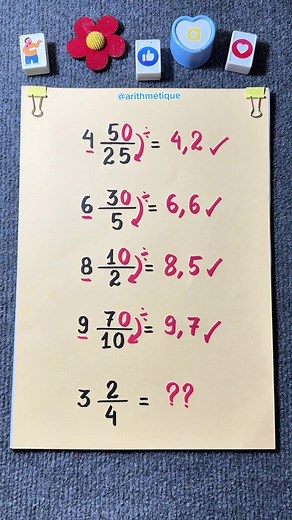 a
@arithmétique
4 50/25 ÷ = 4,2 ✓
6 30/5 ÷ = 6,6 ✓
8 10/2 ÷ = 8,5 ✓
9 70/10 ÷ = 9,7 ✓
3 2/4 = ??